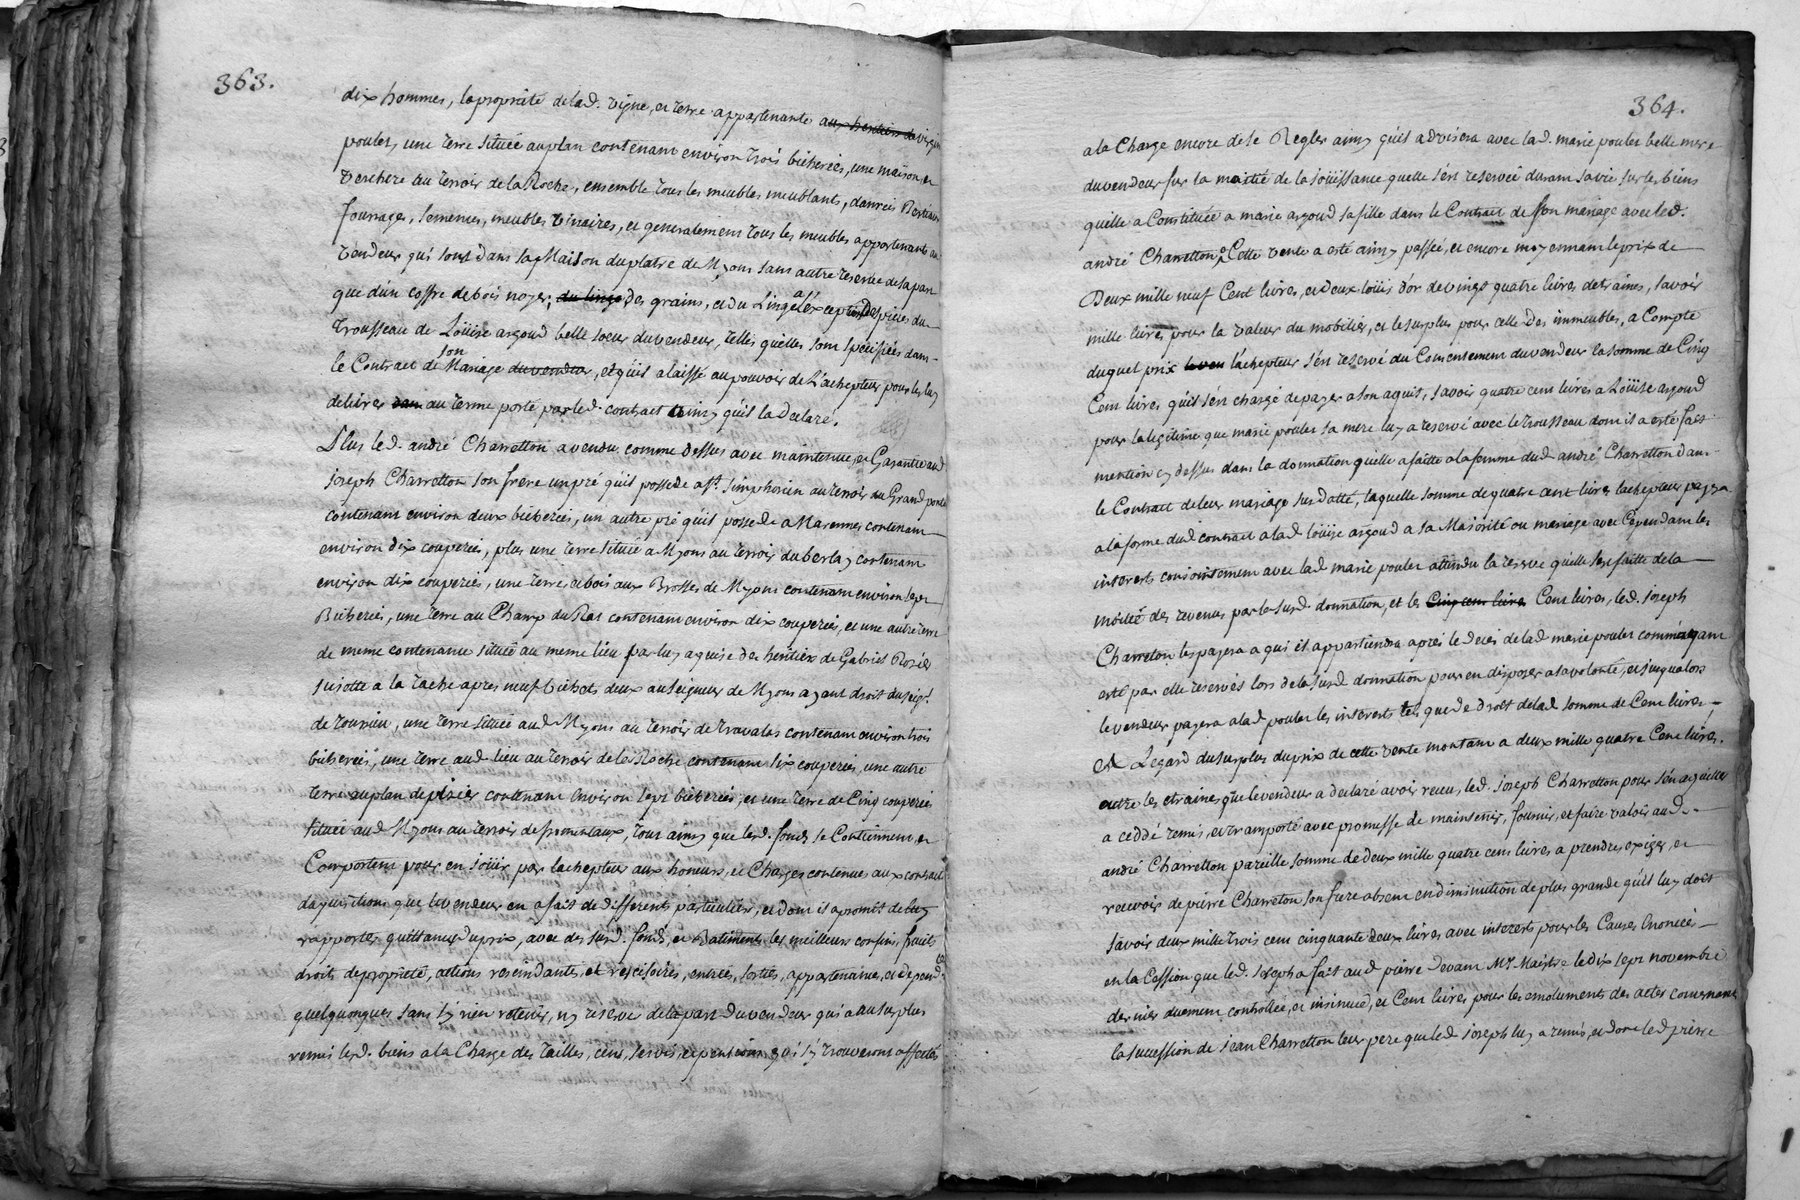 363.
dix hommes, la propriété de lad. vigne, et terre appartenante aux heritiers de virgin
poulet, une terre située au plan contenant environ trois bicherées, une maison, et
verchere au terroir de la Roche, ensemble tous les meubles meublants, danreés Bestiaux
fourrage, semences, meubles vinaires, et generalement tous les meubles appartenants au
vendeur qui sont dans sa Maison du platre de Myons sans autre reserve de sa part
que d'un coffre de bois noyer, du linge des grains, et du Linge a l'exception des pieces du
trousseau de Loüise argoud belle soeur du vendeur, telles quelles sont speciffiées dans
le Contract de son Mariage du vendeur, et qu'il a laissé au pouvoir de L'achepteur pour les luy
delivrer dan au terme porté par led. contract ainsy qu'il la declaré.
Plus led. andré Charretton a vendu comme dessus avec maintenue, et Garantie aud
joseph Charretton son frere un pré qu'il possede a St. simphorien au terroir du Grand ponte
contenant environ deux bicherées, un autre pré qu'il possede a Marennes contenant
environ dix couperées, plus une terre située a Myons au terroir du berlay contenant
environ dix couperées, une terre et bois aux Brosses de Myons contenant environ sept
Bicherées, une terre au Champ du Ras contenant environ dix couperées, et une autre terre
de meme contenance située au meme lieu par luy aquise des heritiers de Gabriel Rozier
sujette a la tache apres neuf bichets deux au seigneur de Myons ayant droit du seigr.
de Tournieu, une terre située aud Myons au terroir de travalas contenant environ trois
bicherées, une terre aud lieu au terroir de les Roche contenant six couperées, une autre
terre au plan de pizier contenant environ sept bicherées, et une terre de Cinq couperées
située aud Myons au terroir de fromentaux, tour ainsy que lesd. fonds se Contiennent et
Comportent pour en joüir par lachepteur aux honeurs, et Charges contenues aux contract
daquisitions que le vendeur en a fait de differents particuliers, et dont il a promit de luy
rapporter quittances du prix, avec des susd. fonds, et Batiments les meilleurs confins, fruits
droits de propriété, actions rescindantes et rescisoires, entrées, sorties, appartenances, et dependces
quelquonques sans s'y rien retenir, ny reserver de la part du vendeur qui a au surplus
remis lesd. biens a la Charge des tailles, cens, servis, et pensions qui s'y trouveront affectés
364.
a la Charge encore de se Regler ainsy qu'il advisera avec lad. marie poulet belle mere
du vendeur sur la moitié de la joüissance quelle s'en reservée durant sa vie sur les biens
quelle a Constituée a marie argoud sa fille dans le Contract de son mariage avec led.
andré Charretton, Cette vente a esté ainsy passée, et encore moyennant le prix de
Deux mille neuf Cent livres, et deux loüis d'or de vingt quatre livres detraines, savoir
mille livres pour la valeur du mobilier, et le surplus pour celle des immeubles, a Compte
duquel prix le ven l'achepteur s'en reservé du Consentement du vendeur la somme de Cinq
Cent livres qu'il s'en chargé de payer a son aquit, savoir quatre cent livres a Loüise argoud
pour la legitime que marie poulet sa mere luy a reservé avec le trousseau dont il a esté fait
mention cy dessus dans la donnation qu'elle a faitte a la femme dud andré Charretton dans
le Contract de leur mariage susdatté, laquelle somme de quatre cent livres lachepteur payera
a la forme dud contract a lad loüise argoud a sa Majorité ou mariage avec Cependant les
interets conjointement avec lad marie poulet attendu la reserve quelle sese faitte de la
moitié des revenus par la susd. donnation, et les Cinq cent livres Cent livres, led. joseph
Charreton les payera a qui il appartiendra aprés le decés de lad marie poulet comme ayant
esté par elle reservés lors de la susd donnation pour en disposer a sa volonté, et jusqu'alors
le vendeur payera a lad poulet les interests tels que de droit de lad somme de Cent livres,
et a Legard du surplus du prix de cette vente montant a deux mille quatre Cent livres,
outre les etraines que le vendeur a declaré avoir receu, led. joseph Charretton pour s'en aquitter
a ceddé remis, et transporté avec promesse de maintenir, fournir, et faire valoir aud
andré Charretton pareille somme de deux mille quatre cent livres a prendre, exiger, et
recevoir de pierre Charreton son frere absent en diminution de plus grande qu'il luy doit
savoir deux mille trois cent cinquante deux livres avec interets pour les Causes Enoncées
en la Cession que led. joseph a fait aud pierre devant Mr. Maistre le dix sept novembre
dernier duement controllée, et insinuée, et Cent livres pour les emoluments des actes concernant
la succession de jean Charretton leur pere que led joseph luy a remis, et dont led pierre